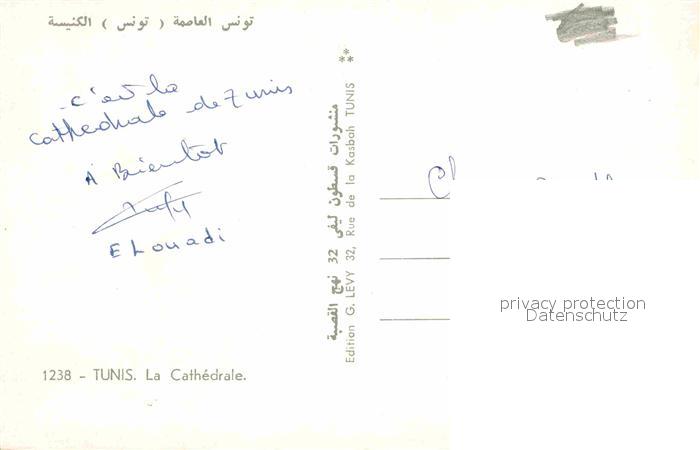 تونس العاصمة ( تونس ) الكنيسة
c'est la
cathédrale de Tunis
A Bientot
ELouadi
1238 - TUNIS. La Cathédrale.
**
منشورات قسطون ليفي 32 نهج القصبة
Edition G. LEVY 32, Rue de la Kasbah TUNIS
privacy protection
Datenschutz